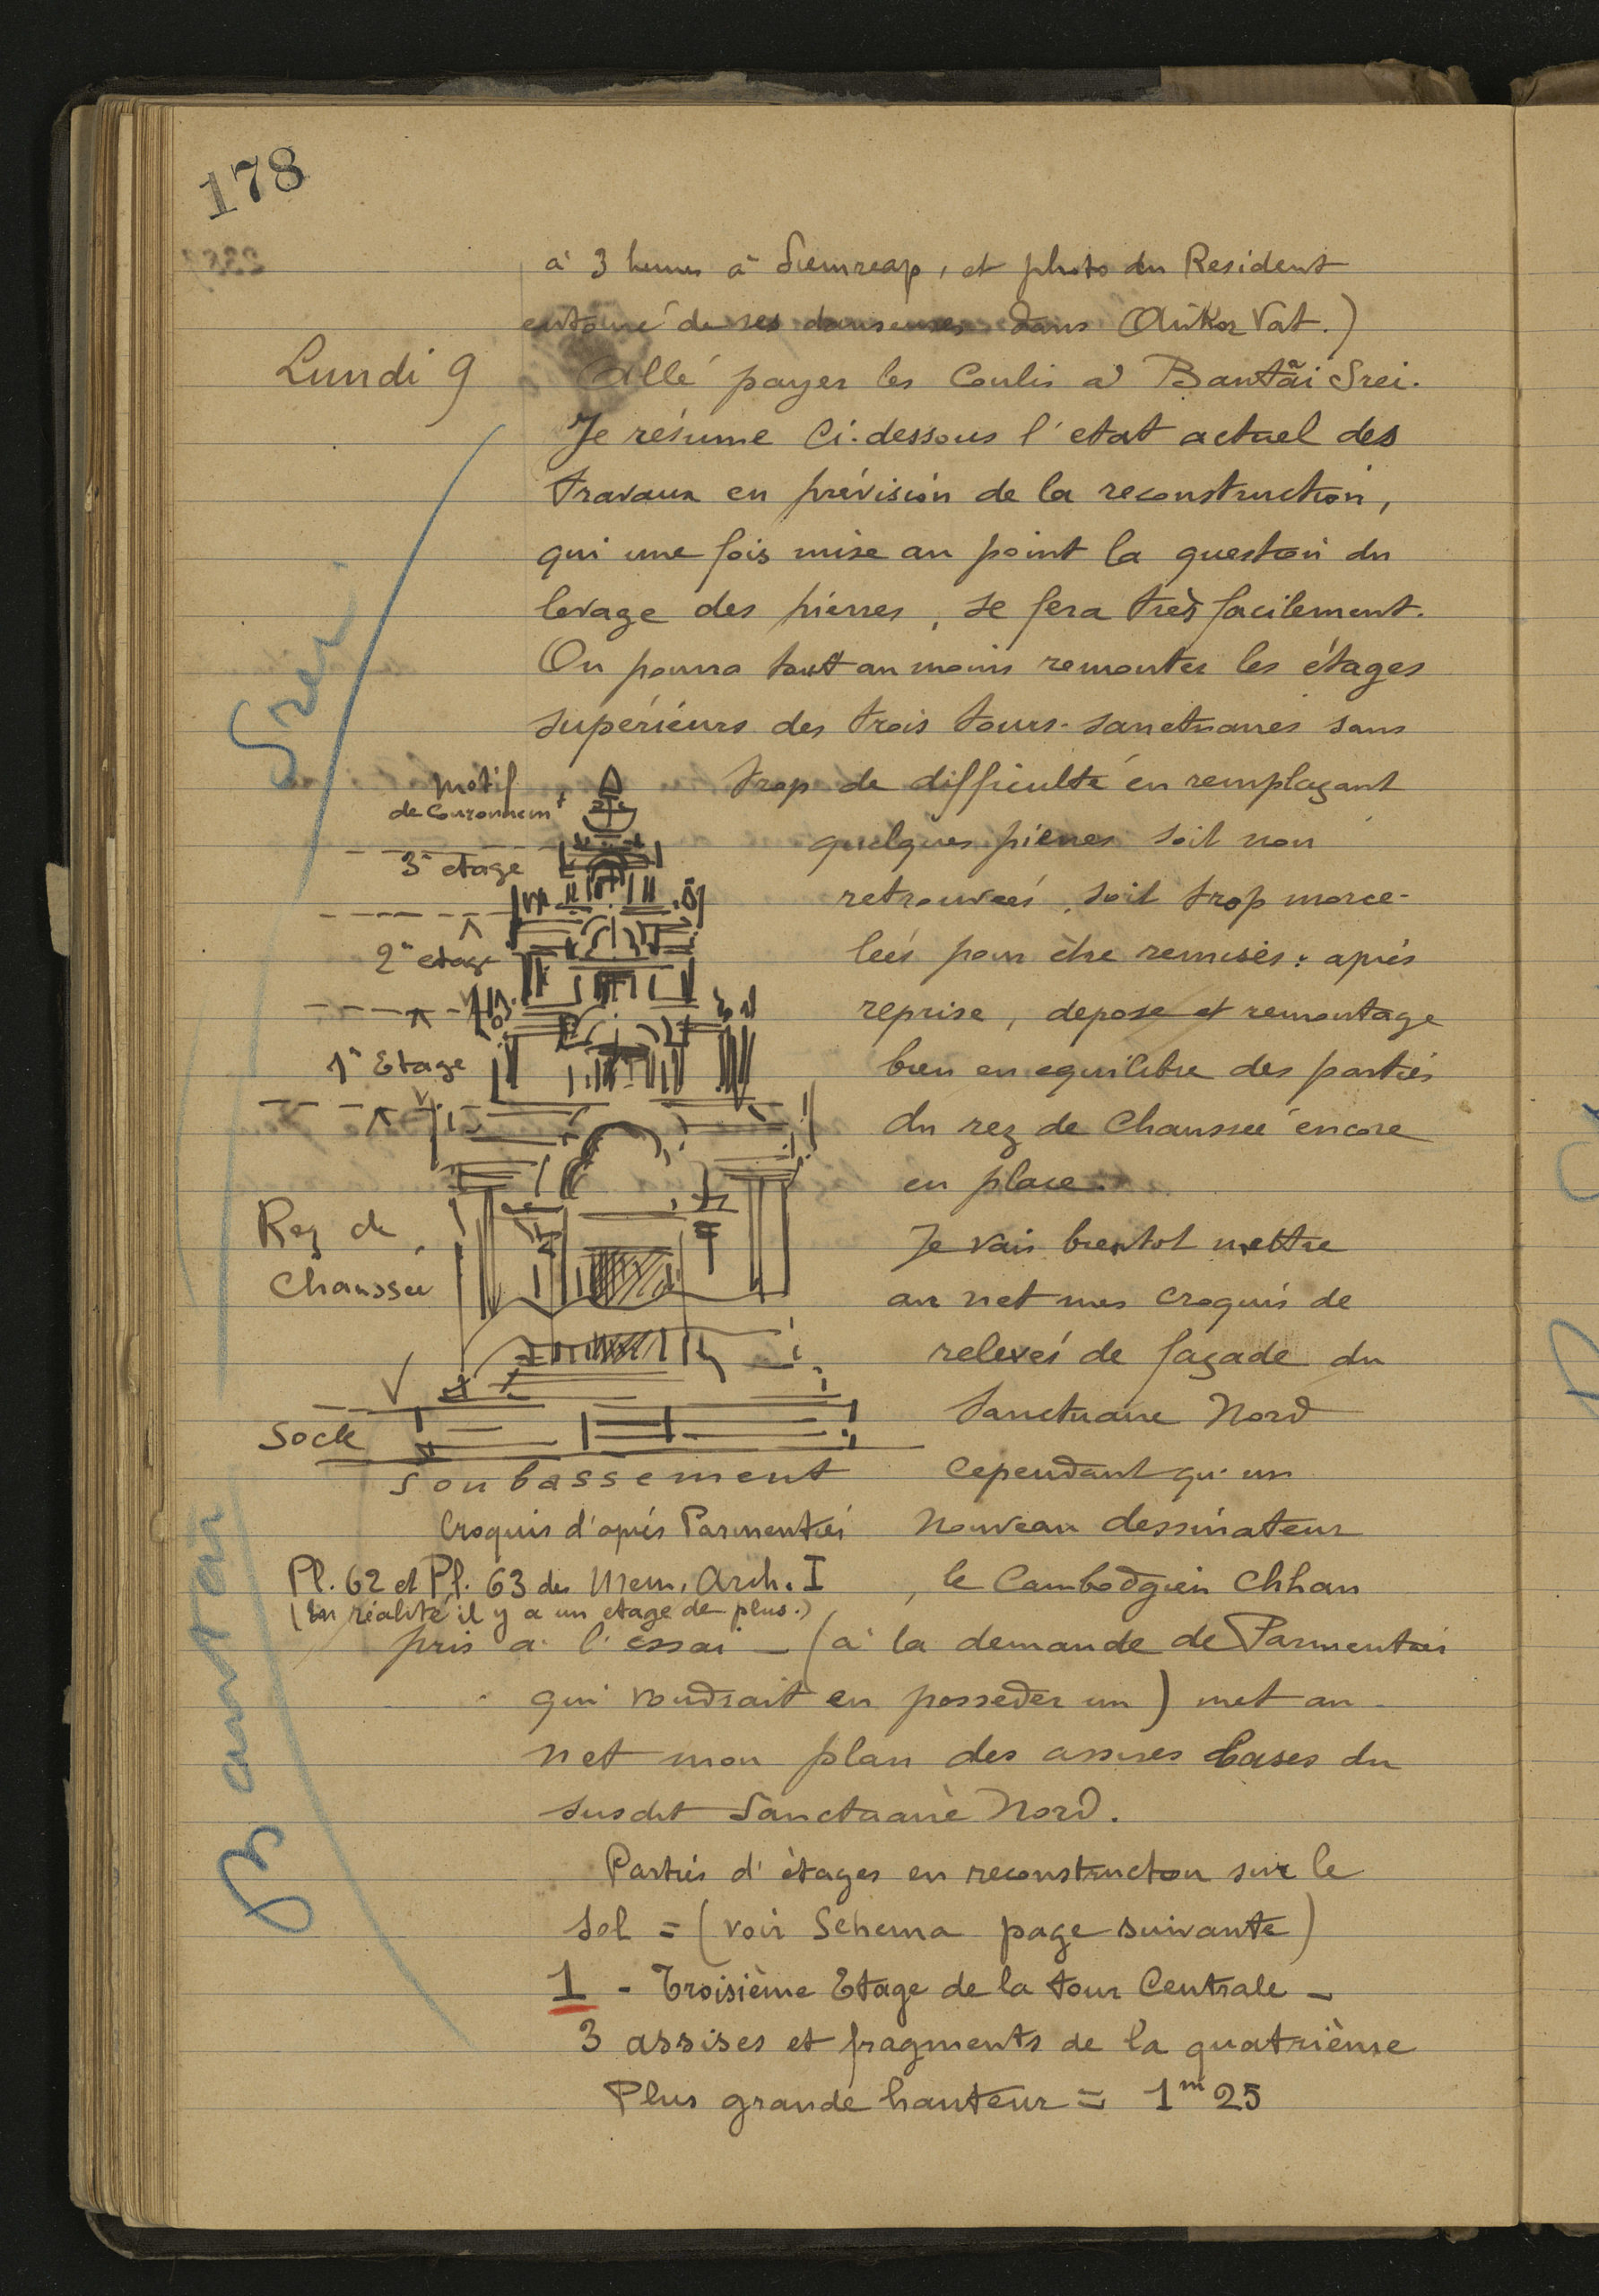 178
à 3 heures à Siemreap, et photo du Resident
entouré de ses danseuses dans Ankor Vat.)
Lundi 9
Allé payer les Coulis à Bantãi Srei.
Je résume ci-dessous l'etat actuel des
travaux en prévision de la reconstruction,
qui une fois mise au point la question du
levage des pierres, se fera très facilement.
On pourra tout au moins remonter les étages
supérieurs des trois tours-sanctuaires sans
trop de difficulté en remplaçant
quelques pierres soit non
retrouvées, soit trop morce-
lées pour être remises : après
reprise, depose et remontage
bien en equilibre des parties
du rez de Chaussée encore
en place.
Je vais bientot mettre
au net mes croquis de
relevés de façade du
Sanctuaire Nord
cependant qu'un
nouveau dessinateur
, le Cambodgien Chhan
pris à l'essai _ (à la demande de Parmentier
qui voudrait en posseder un) met au
net mon plan des assises bases du
susdit Sanctuaire Nord.
Parties d'étages en reconstruction sur le
sol = (voir Schema page suivante)
1 - Troisième Etage de la tour Centrale _
3 assises et fragments de la quatrième
Plus grande hauteur = 1m25
motif
de Couronnemt
3e etage
2e etage
1e Etage
Rez de
Chaussée
Socle
Soubassement
Croquis d'après Parmentier
Pl. 62 et Pl. 63 des Mem. Arch. I
(En réalité il y a un etage de plus.)
Bantãi Srei